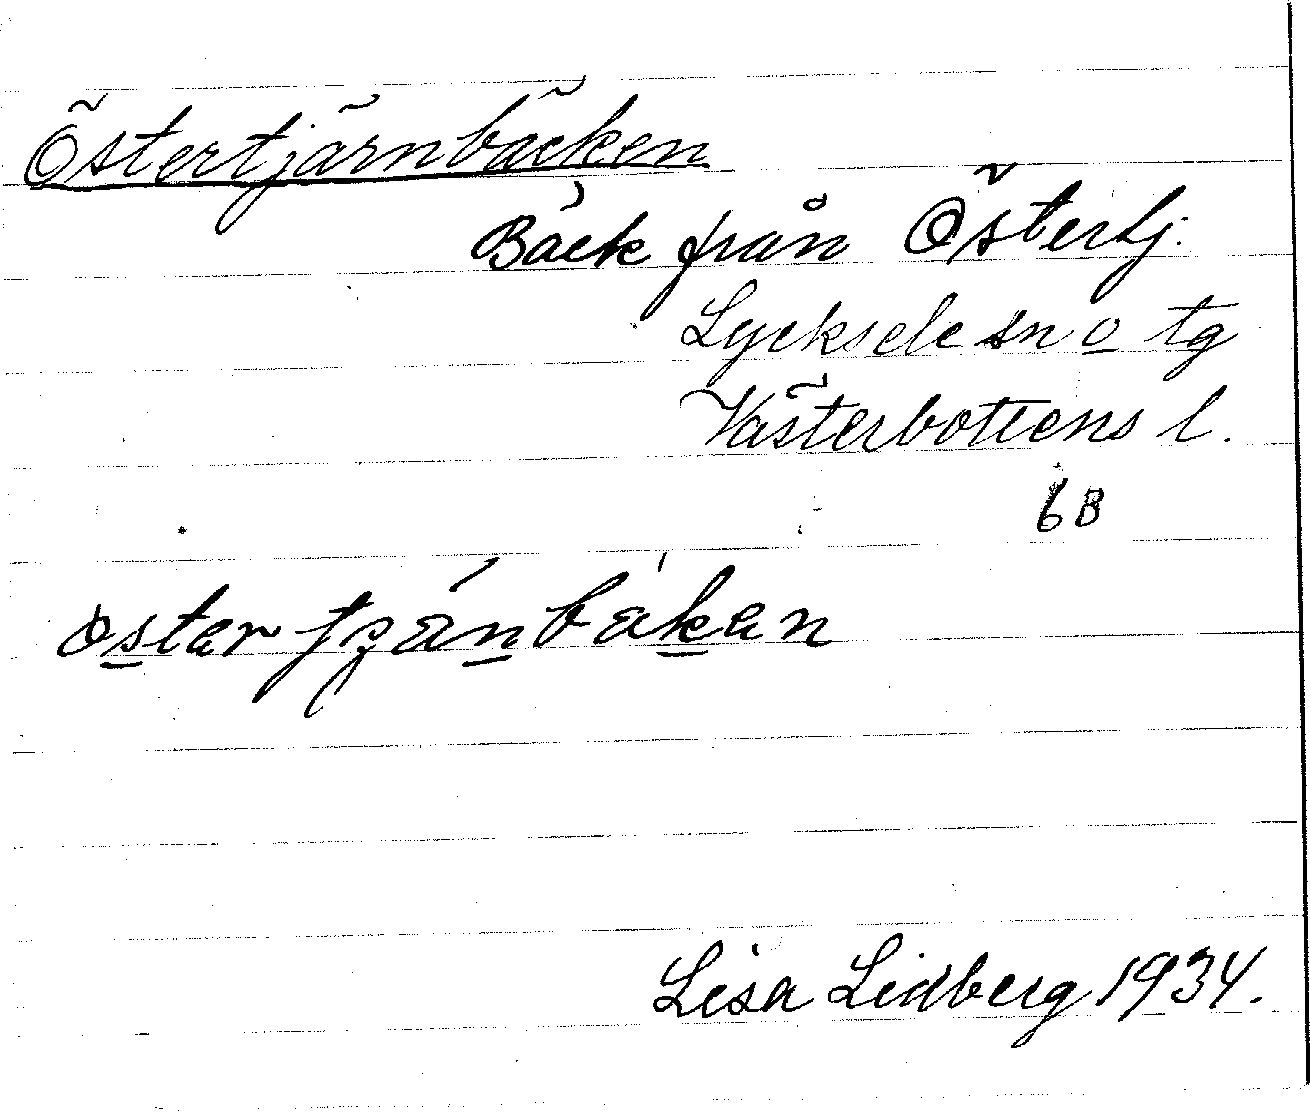 Östertjärnbäcken
Bäck från Östertj.
Lycksele sn o tg
Västerbottens l.
6B
Lisa Lidberg 1934.